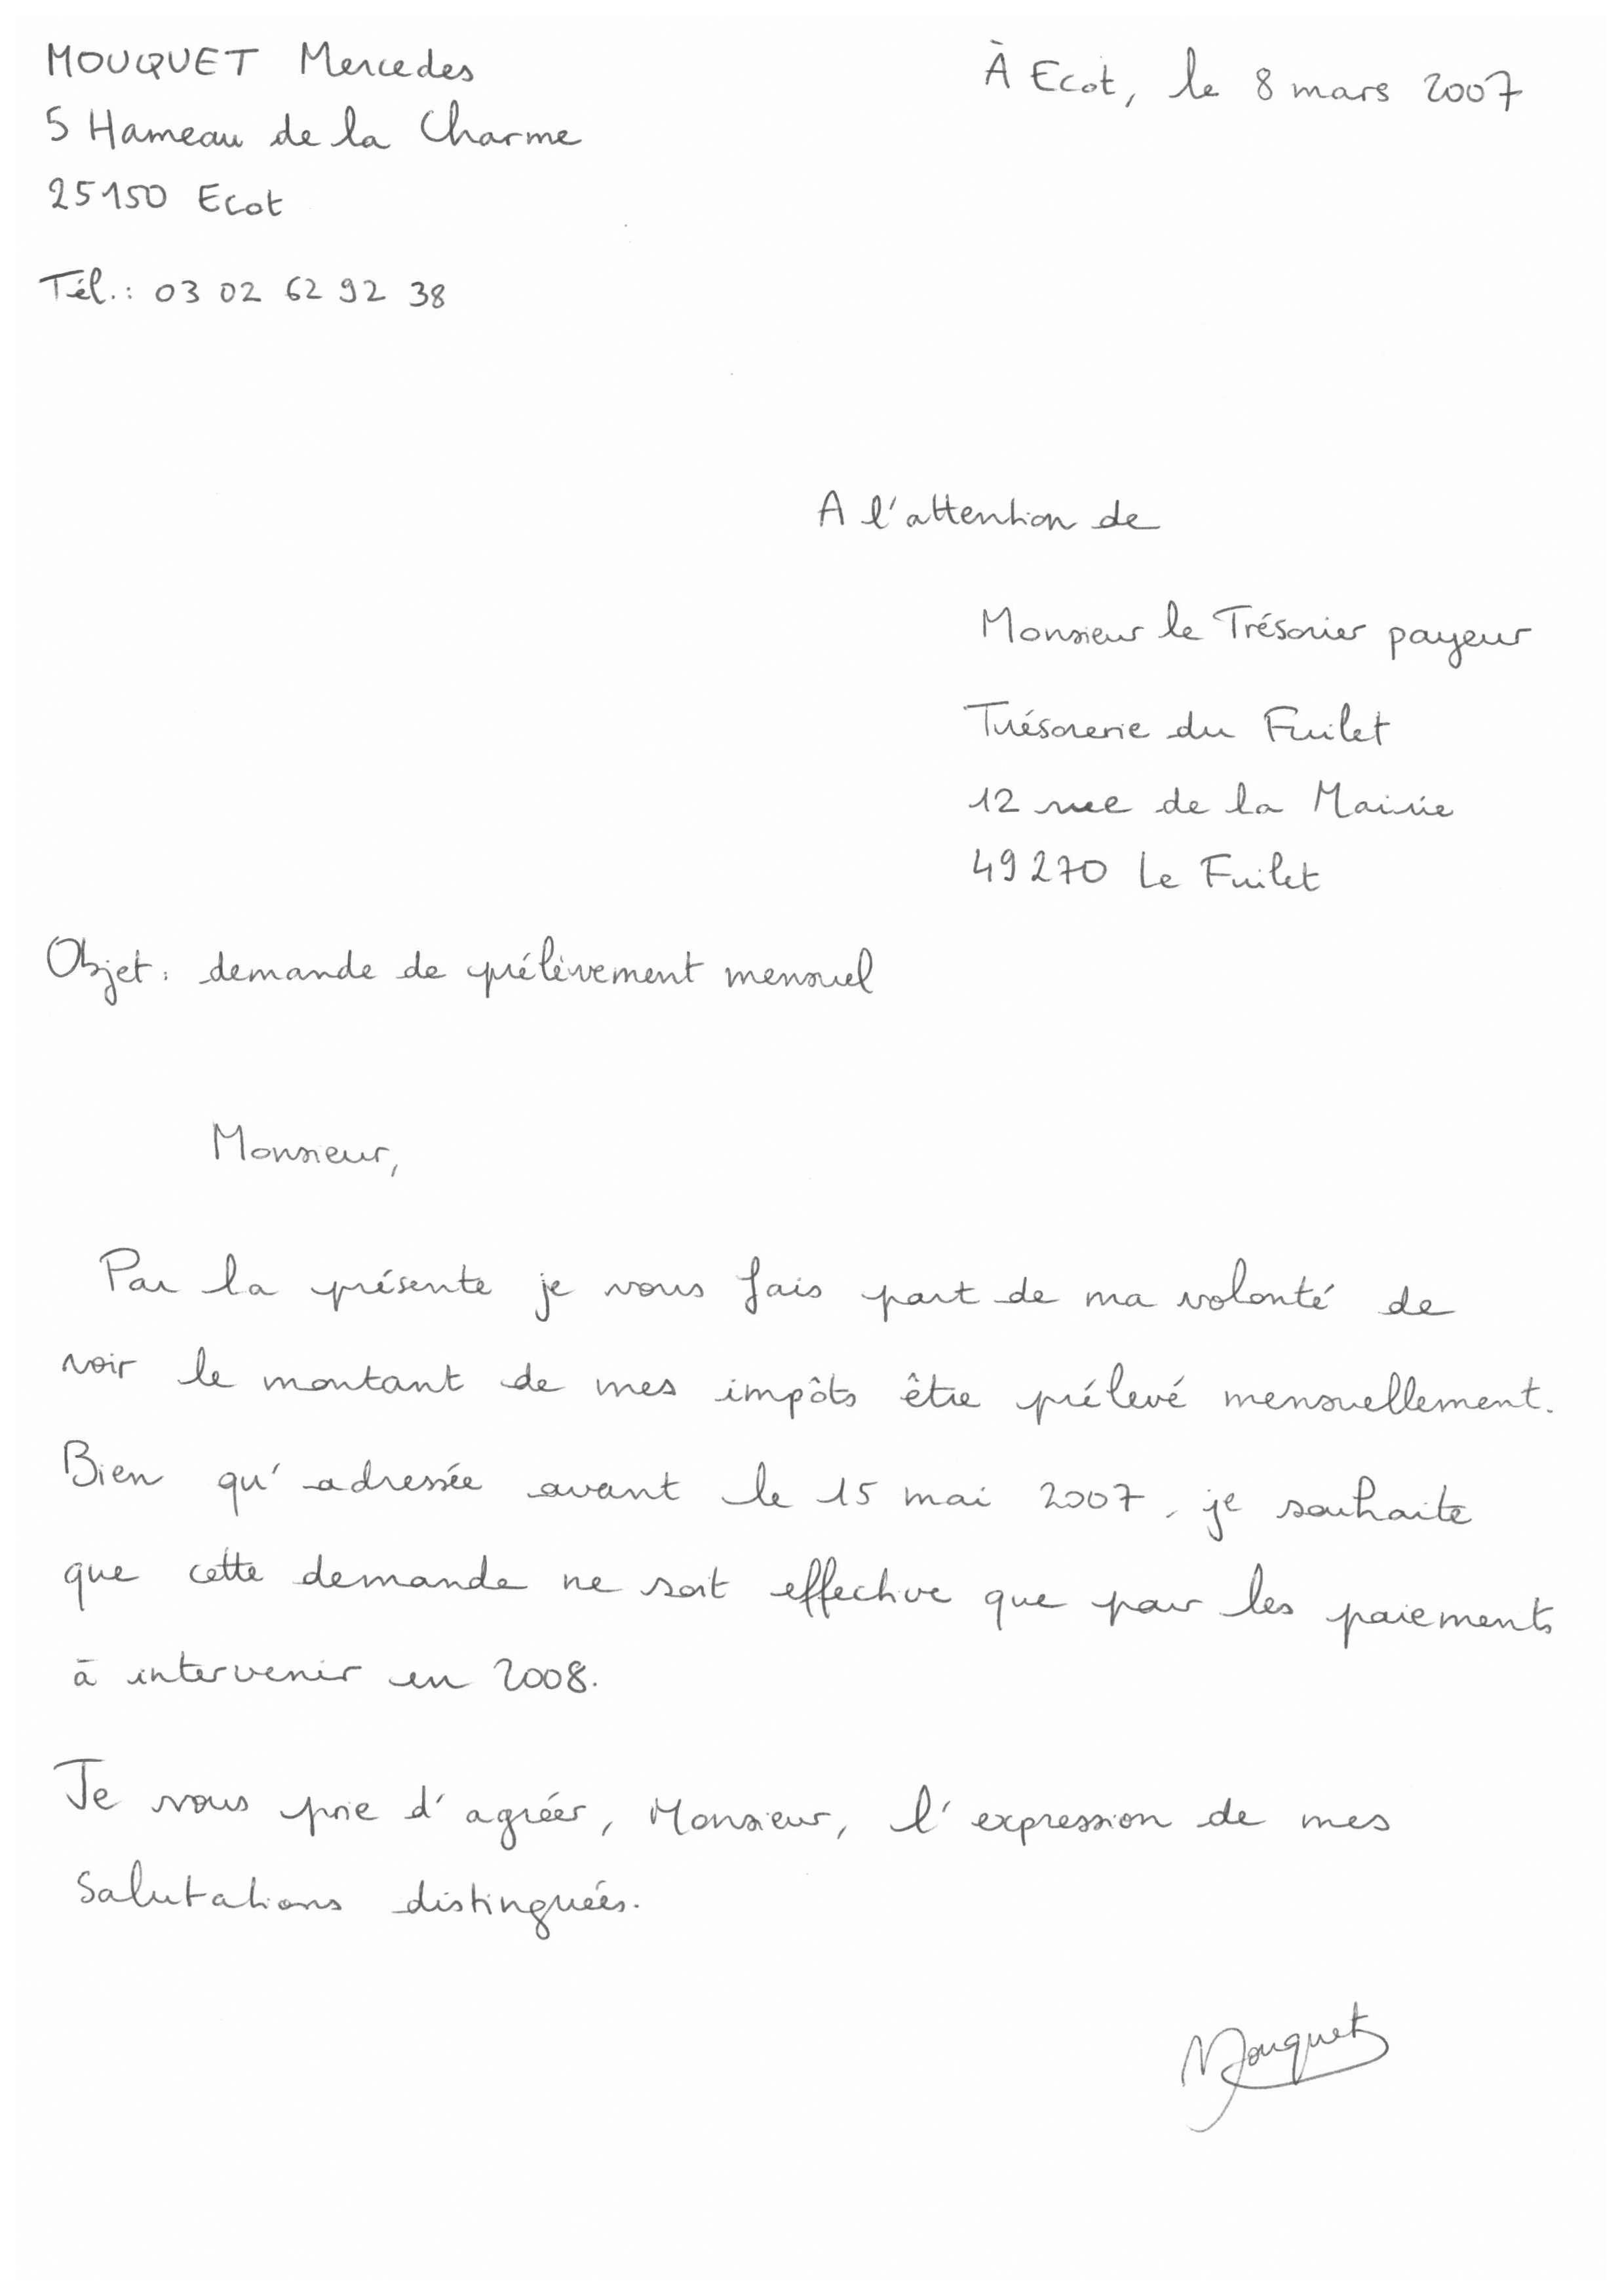 MOUQUET Mercedes
À Ecot, le 8 mars 2007
5 Hameau de la Charme
25150 Ecot
Tél.: 03 02 62 92 38
A l'attention de
Monsieur le Trésorier payeur
Trésorerie du Fuilet
12 rue de la Mairie
49270 Le Fuilet
Objet: demande de prélèvement mensuel
Monsieur,
Par la présente je vous fais part de ma volonté de
voir le montant de mes impôts être prélevé mensuellement.
Bien qu'adressée avant le 15 mai 2007, je souhaite
que cette demande ne soit effective que pour les paiements
à intervenir en 2008.
Je vous prie d'agréer, Monsieur, l'expression de mes
salutations distinguées.
Mouquet